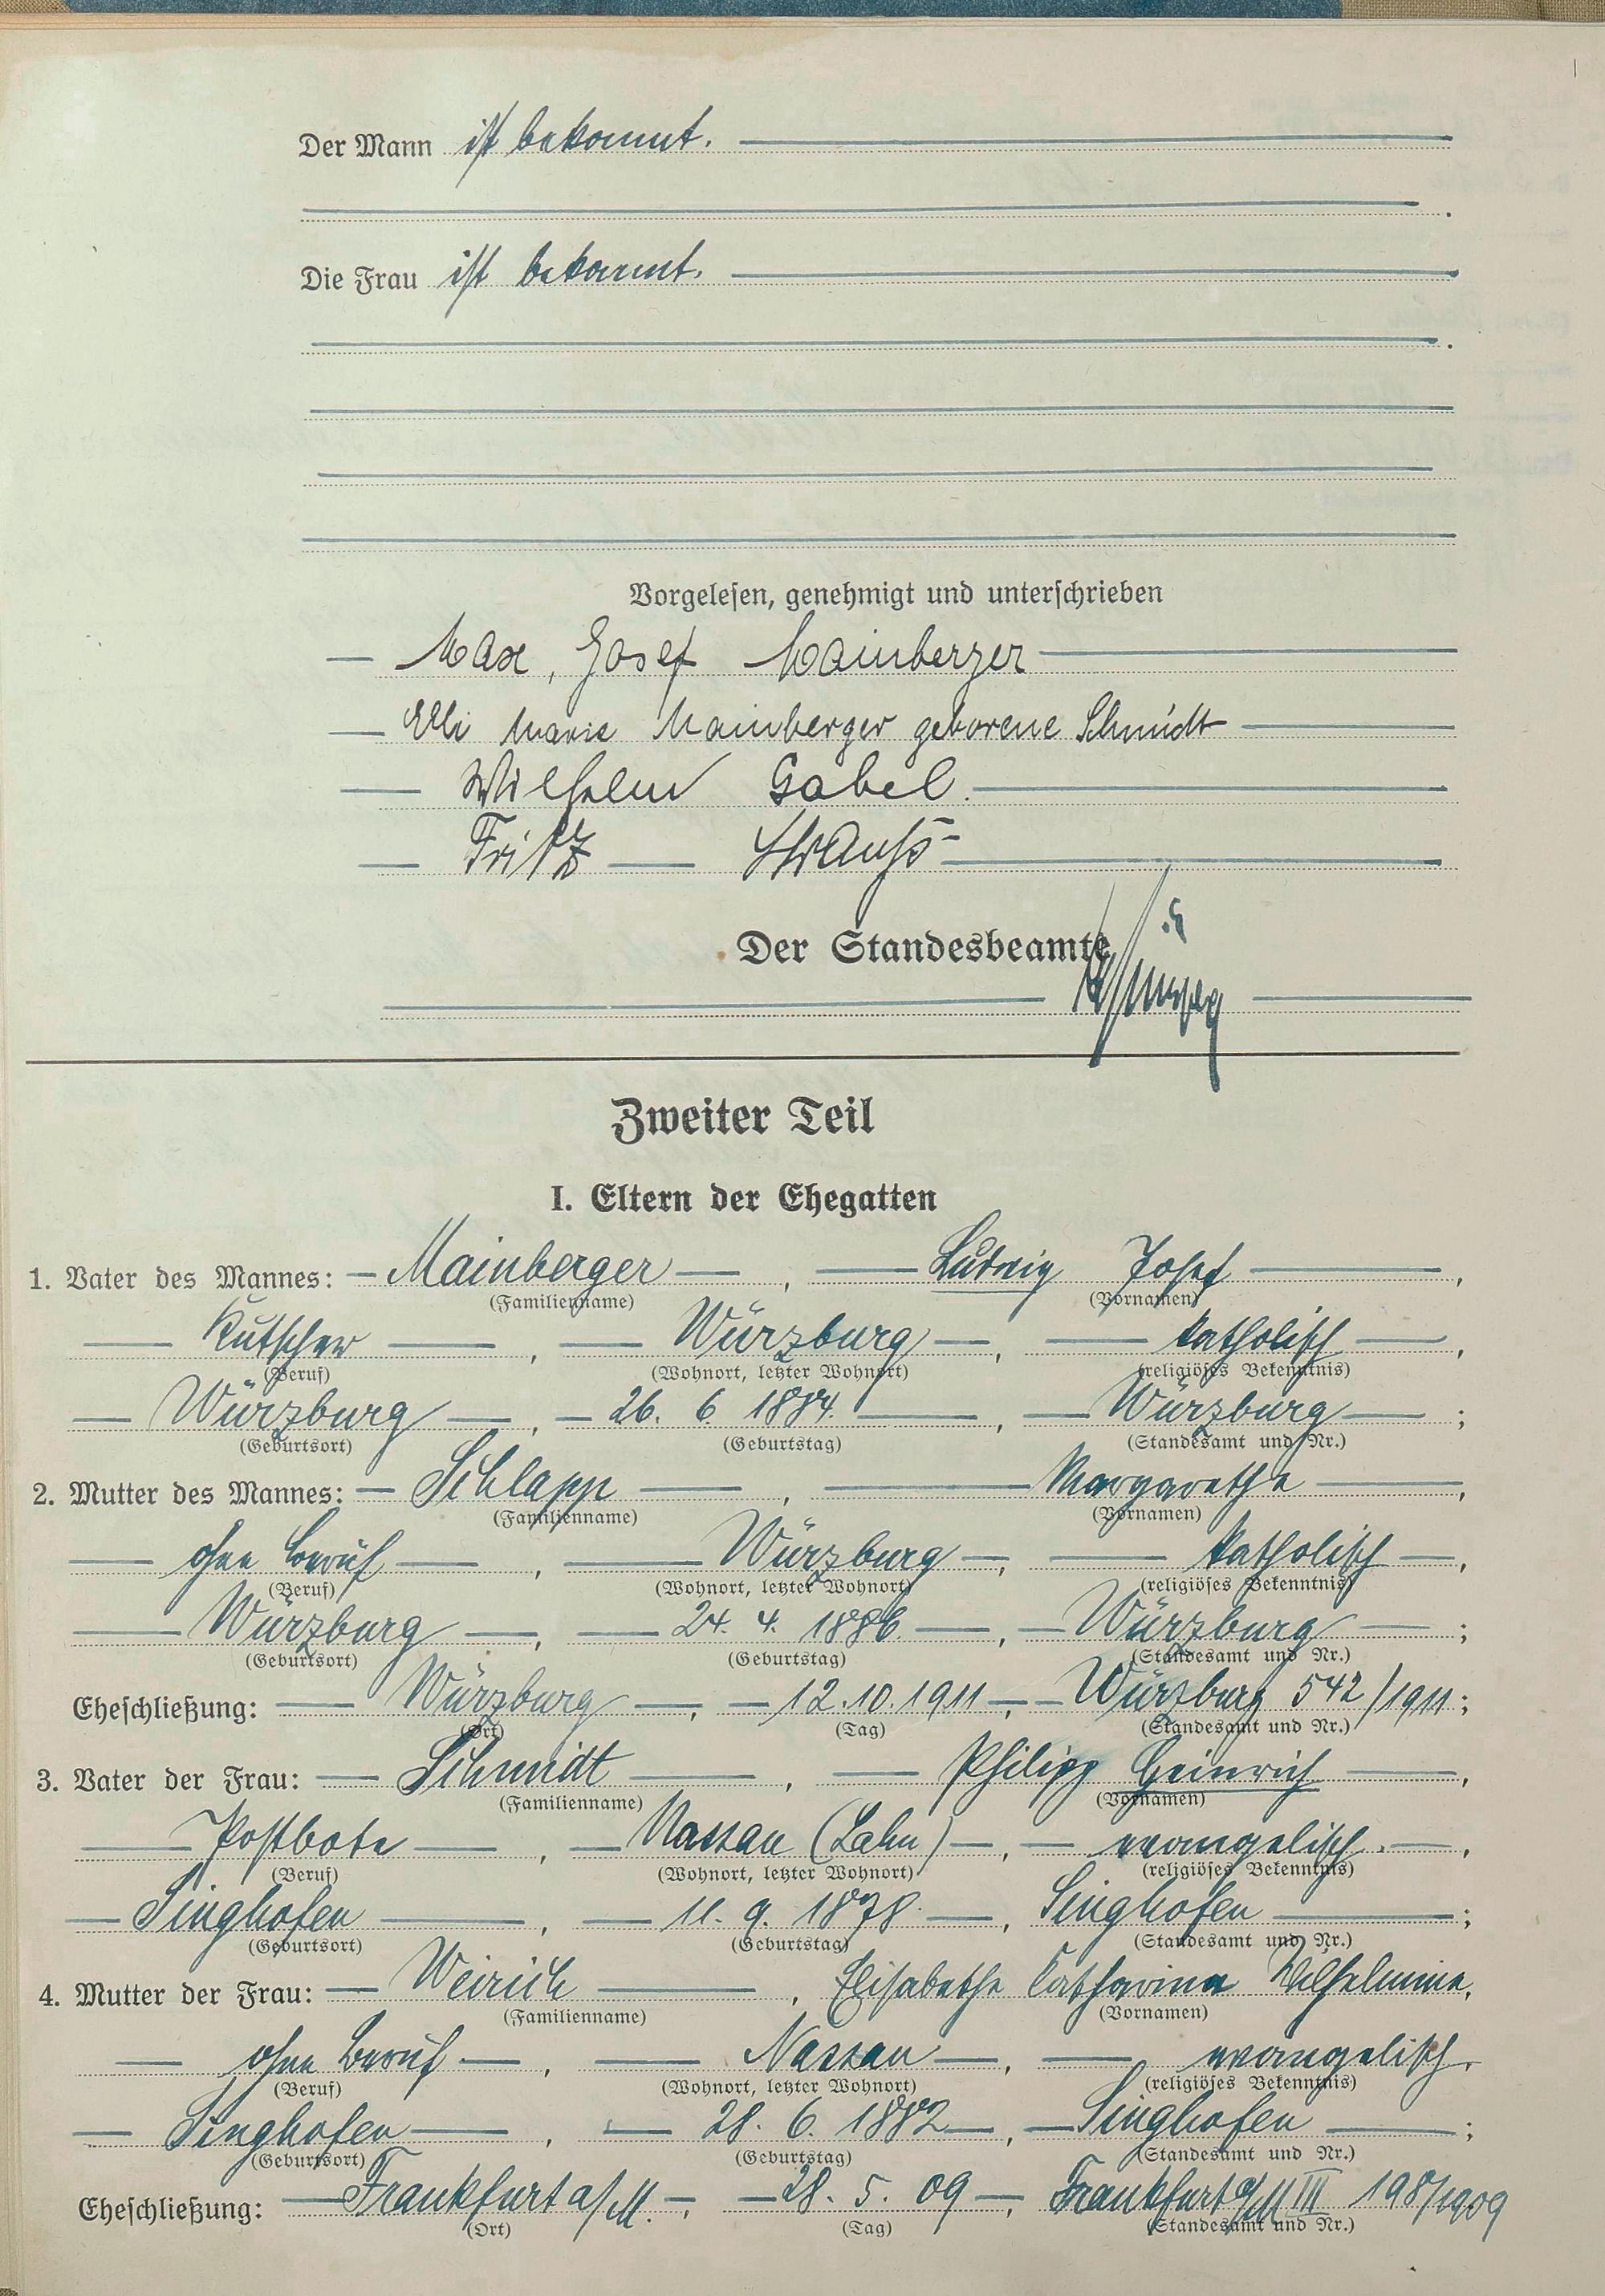 Der Mann ist bekannt.
Die Frau ist bekannt.
Vorgelesen, genehmigt und unterschrieben
Max, Josef Mainberger
Elli Marie Mainberger geborene Schmidt
Wilhelm Gabel.
Fritz Strauß
Der Standesbeamte
Zweiter Teil
I. Eltern der Ehegatten
1. Vater des Mannes: Mainberger, Ludwig Josef,
(Familienname) (Vornamen)
Kutscher, Würzburg, katholisch,
(Beruf) (Wohnort, letzter Wohnort) (religiöses Bekenntnis)
Würzburg, 26. 6. 1884., Würzburg;
(Geburtsort) (Geburtstag) (Standesamt und Nr.)
2. Mutter des Mannes: Schlapp, Margarethe,
(Familienname) (Vornamen)
ohne Beruf, Würzburg, katholisch,
(Beruf) (Wohnort, letzter Wohnort) (religiöses Bekenntnis)
Würzburg, 24. 4. 1886., Würzburg;
(Geburtsort) (Geburtstag) (Standesamt und Nr.)
Eheschließung: Würzburg, 12.10.1911, Würzburg 542/1911;
(Ort) (Tag) (Standesamt und Nr.)
3. Vater der Frau: Schmidt, Philipp Heinrich,
(Familienname) (Vornamen)
Postbote, Nassau (Lahn), evangelisch.,
(Beruf) (Wohnort, letzter Wohnort) (religiöses Bekenntnis)
Singhofen, 11. 9. 1878., Singhofen;
(Geburtsort) (Geburtstag) (Standesamt und Nr.)
4. Mutter der Frau: Weirich, Elisabethe Catharina Wilhelmine,
(Familienname) (Vornamen)
ohne Beruf, Nassau, evangelisch,
(Beruf) (Wohnort, letzter Wohnort) (religiöses Bekenntnis)
Singhofen, 28. 6. 1882, Singhofen;
(Geburtsort) (Geburtstag) (Standesamt und Nr.)
Eheschließung: Frankfurt a/M., 28. 5. 09, Frankfurt a/M III 198/1909
(Ort) (Tag) (Standesamt und Nr.)